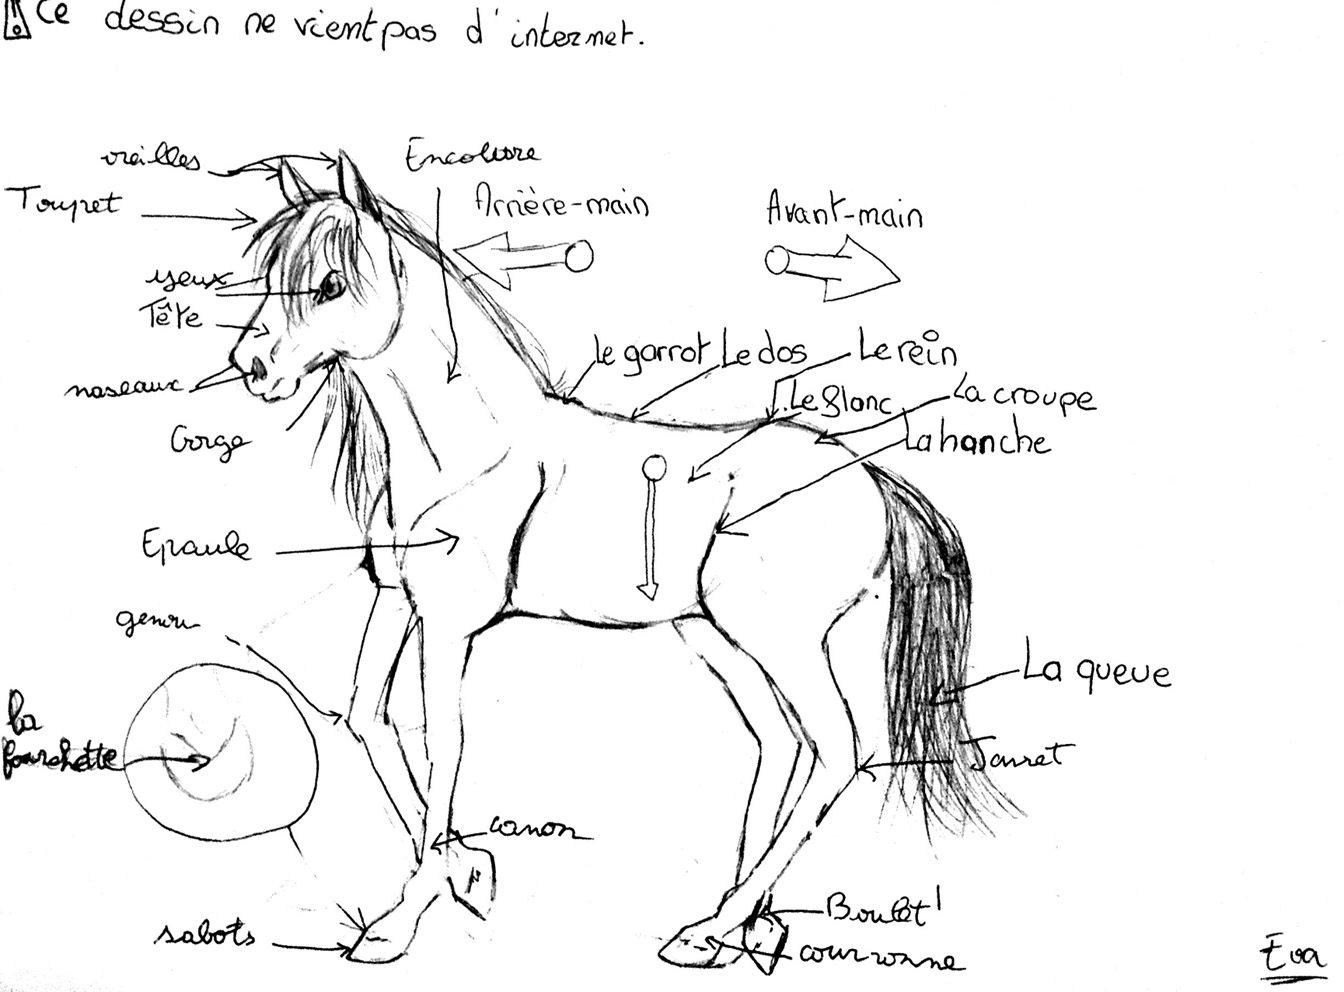 Ce dessin ne vient pas d'internet.
oreilles
Encolure
Toupet
Arrière-main
Avant-main
yeux
Tête
le garrot
Le dos
Le rein
naseaux
Le flanc
La croupe
Gorge
La hanche
Epaule
genou
La queue
la
fourchette
Jarret
canon
Boulet
sabots
couronne
Eva